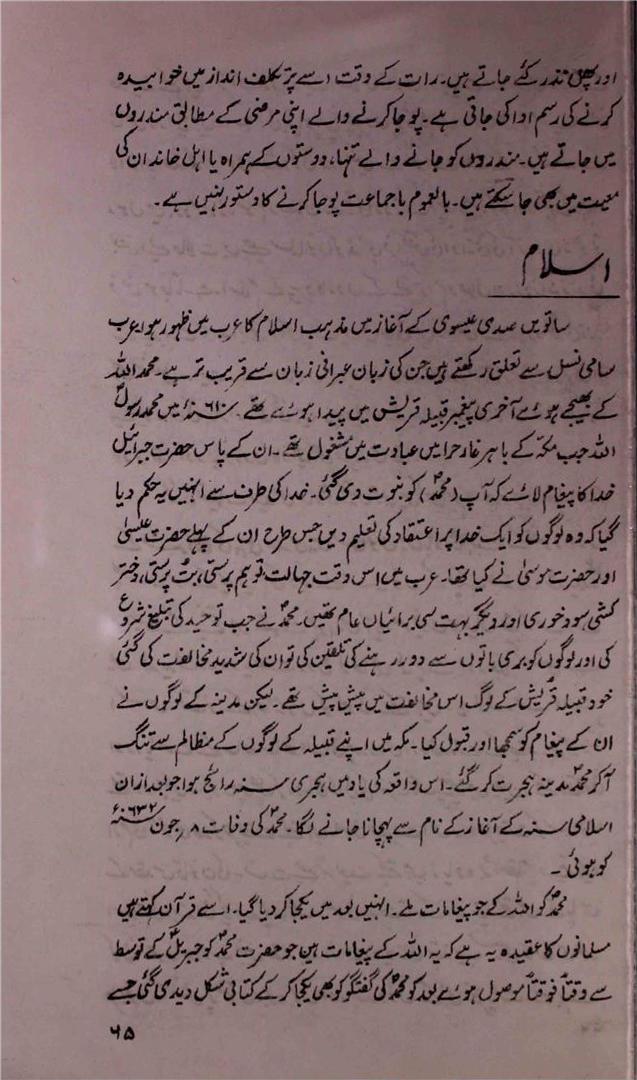 اور پھل نذر کئے جاتے ہیں۔ رات کے وقت اسے پُر تکلف انداز میں خوابیدہ
کرنے کی رسم ادا کی جاتی ہے۔ پوجا کرنے والے اپنی مرضی کے مطابق مندروں
میں جاتے ہیں۔ مندروں کو جانے والے تنہا، دوستوں کے ہمراہ یا اہل خاندان کی
معیت میں بھی جا سکتے ہیں۔ بالعموم باجماعت پوجا کرنے کا دستور نہیں ہے۔
اسلام
ساتویں صدی عیسوی کے آغاز میں مذہب اسلام کا عرب میں ظہور ہوا۔ عرب
سامی نسل سے تعلق رکھتے ہیں جن کی زبان عبرانی زبان سے قریب تر ہے۔ محمدؐ اللہ
کے بھیجے ہوئے آخری پیغمبر قبیلہ قریش میں پیدا ہوئے تھے۔ ۶۱۰ء میں محمد رسولؐ
اللہ جب مکہ کے باہر غار حرا میں عبادت میں مشغول تھے۔ ان کے پاس حضرت جبرائیل
خدا کا پیغام لائے کہ آپ (محمدؐ) کو نبوت دی گئی۔ خدا کی طرف سے انہیں یہ حکم دیا
گیا کہ وہ لوگوں کو ایک خدا پر اعتقاد کی تعلیم دیں جس طرح ان کے پہلے حضرت عیسیٰ
اور حضرت موسیٰ نے کیا تھا۔ عرب میں اس وقت جہالت توہم پرستی، بت پرستی، دختر
کشی سود خوری اور دیگر بہت سی برائیاں عام تھیں۔ محمدؐ نے جب توحید کی تبلیغ شروع
کی اور لوگوں کو بری باتوں سے دور رہنے کی تلقین کی تو ان کی شدید مخالفت کی گئی
خود قبیلہ قریش کے لوگ اس مخالفت میں پیش پیش تھے۔ لیکن مدینہ کے لوگوں نے
ان کے پیغام کو سمجھا اور قبول کیا۔ مکہ میں اپنے قبیلہ کے لوگوں کے مظالم سے تنگ
آ کر محمدؐ مدینہ ہجرت کر گئے۔ اس واقعہ کی یاد میں ہجری سنہ رائج ہوا جو بعد ازاں
اسلامی سنہ کے آغاز کے نام سے پہچانا جانے لگا۔ محمدؐ کی وفات ۸ر جون ۶۳۲ء
کو ہوئی۔
محمدؐ کو اللہ کے جو پیغامات ملے۔ انہیں بعد میں یکجا کر دیا گیا۔ اسے قرآن کہتے ہیں
مسلمانوں کا عقیدہ یہ ہے کہ یہ اللہ کے پیغامات ہیں جو حضرت محمدؐ کو جبریلؑ کے توسط
سے وقتاً فوقتاً موصول ہوئے بعد کو محمدؐ کی گفتگو کو بھی یکجا کر کے کتابی شکل دیدی گئی جسے
۶۵